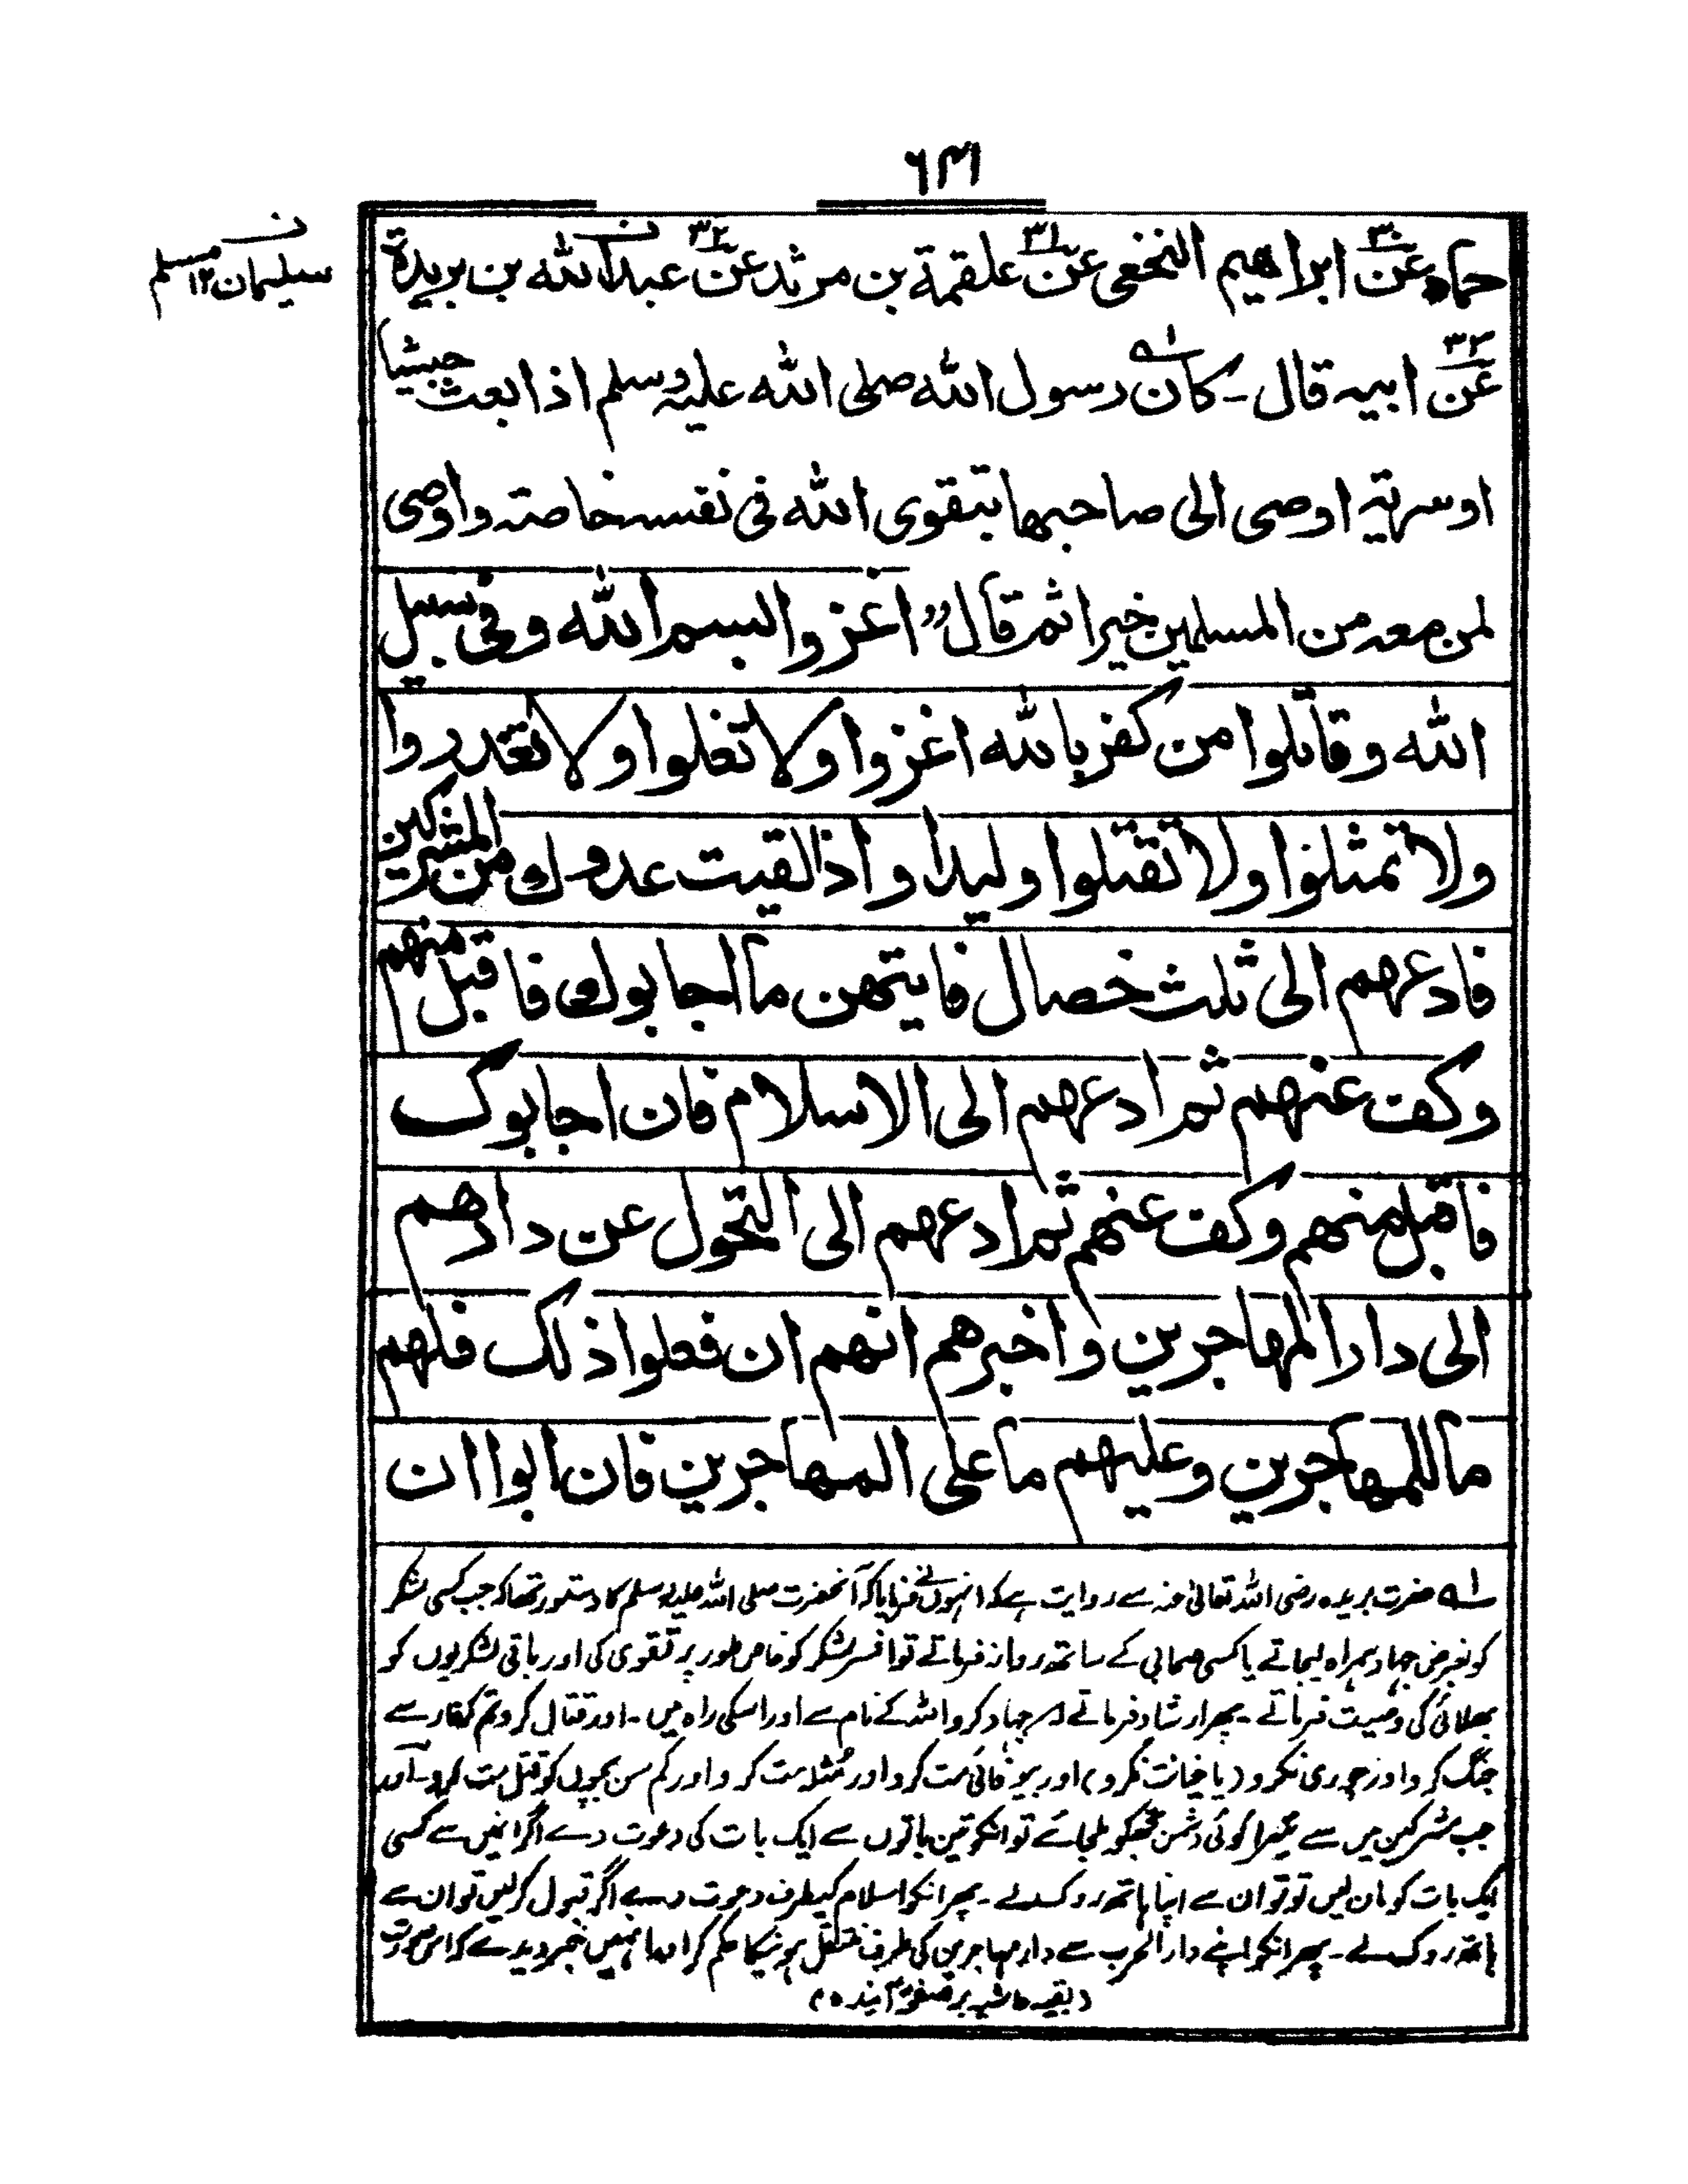 ٦٣١
حماد عن ابراهيم النخعى عن علقمة بن مرثد عن عبد الله بن بريدة
٣٠ ٣١ ٣٢
ن سليمان ١٢ مسلم
عن ابيه قال ـ كان رسول الله صلى الله عليه وسلم اذا بعث جيشا
٣٣ ١ه
او سرية اوصى الى صاحبها بتقوى الله فى نفسه خاصة واوصى
لمن معه من المسلمين خيرا ثم قال ” اغزوا لبسم الله وفى سبيل
الله وقاتلوا من كفر بالله اغزوا ولا تغلوا ولا تغدروا
ولا تمثلوا ولا تقتلوا وليدا واذا لقيت عدوك من المشركين
فادعهم الى ثلث خصال فايتهن ما اجابوك فاقبل منهم
وكف عنهم ثم ادعهم الى الاسلام فان اجابوك
فاقبل منهم وكف عنهم ثم ادعهم الى التحول عن دارهم
الى دار المهاجرين واخبرهم انهم ان فعلوا ذلك فلهم
ما للمهاجرين وعليهم ما على المهاجرين فان ابوا ان
١ه حضرت بریدہ رضی اللہ تعالیٰ عنہ سے روایت ہے کہ انہوں نے فرمایا کہ آنحضرت صلی اللہ علیہ وسلم کا دستور تھا کہ جب کسی لشکر
کو بغرض جہاد ہمراہ لیجاتے یا کسی صحابی کے ساتھ روانہ فرماتے تو افسر لشکر کو خاص طور پر تقوی کی اور باقی لشکریوں کو
بھلائی کی وصیت فرماتے ـ پھر ارشاد فرماتے جہاد کرو اللہ کے نام سے اور اسکی راہ میں ـ اور قتال کرو تم کفار سے
جنگ کرو اور چوری نکرو (یا خیانت نکرو) اور بیوفائی مت کرو اور مُثلہ مت کرو اور کم سن بچوں کو قتل مت کرو ـ اور
جب مشرکین میں سے تیرا کوئی دشمن تجھکو ملجائے تو انکو تین باتوں سے ایک بات کی دعوت دے اگر انمیں سے کسی
ایک بات کو مان لیں تو تو ان سے اپنا ہاتھ روک لے ـ پھر انکو اسلام کیطرف دعوت دے اگر قبول کرلیں تو ان سے
ہاتھ روک لے ـ پھر انکو اپنے دار الحرب سے دار مہاجرین کی طرف منتقل ہونیکا حکم کر اور انہیں خبر دیدے کہ اس صورت
(بقیہ حاشیہ بر صفحہ آیندہ)